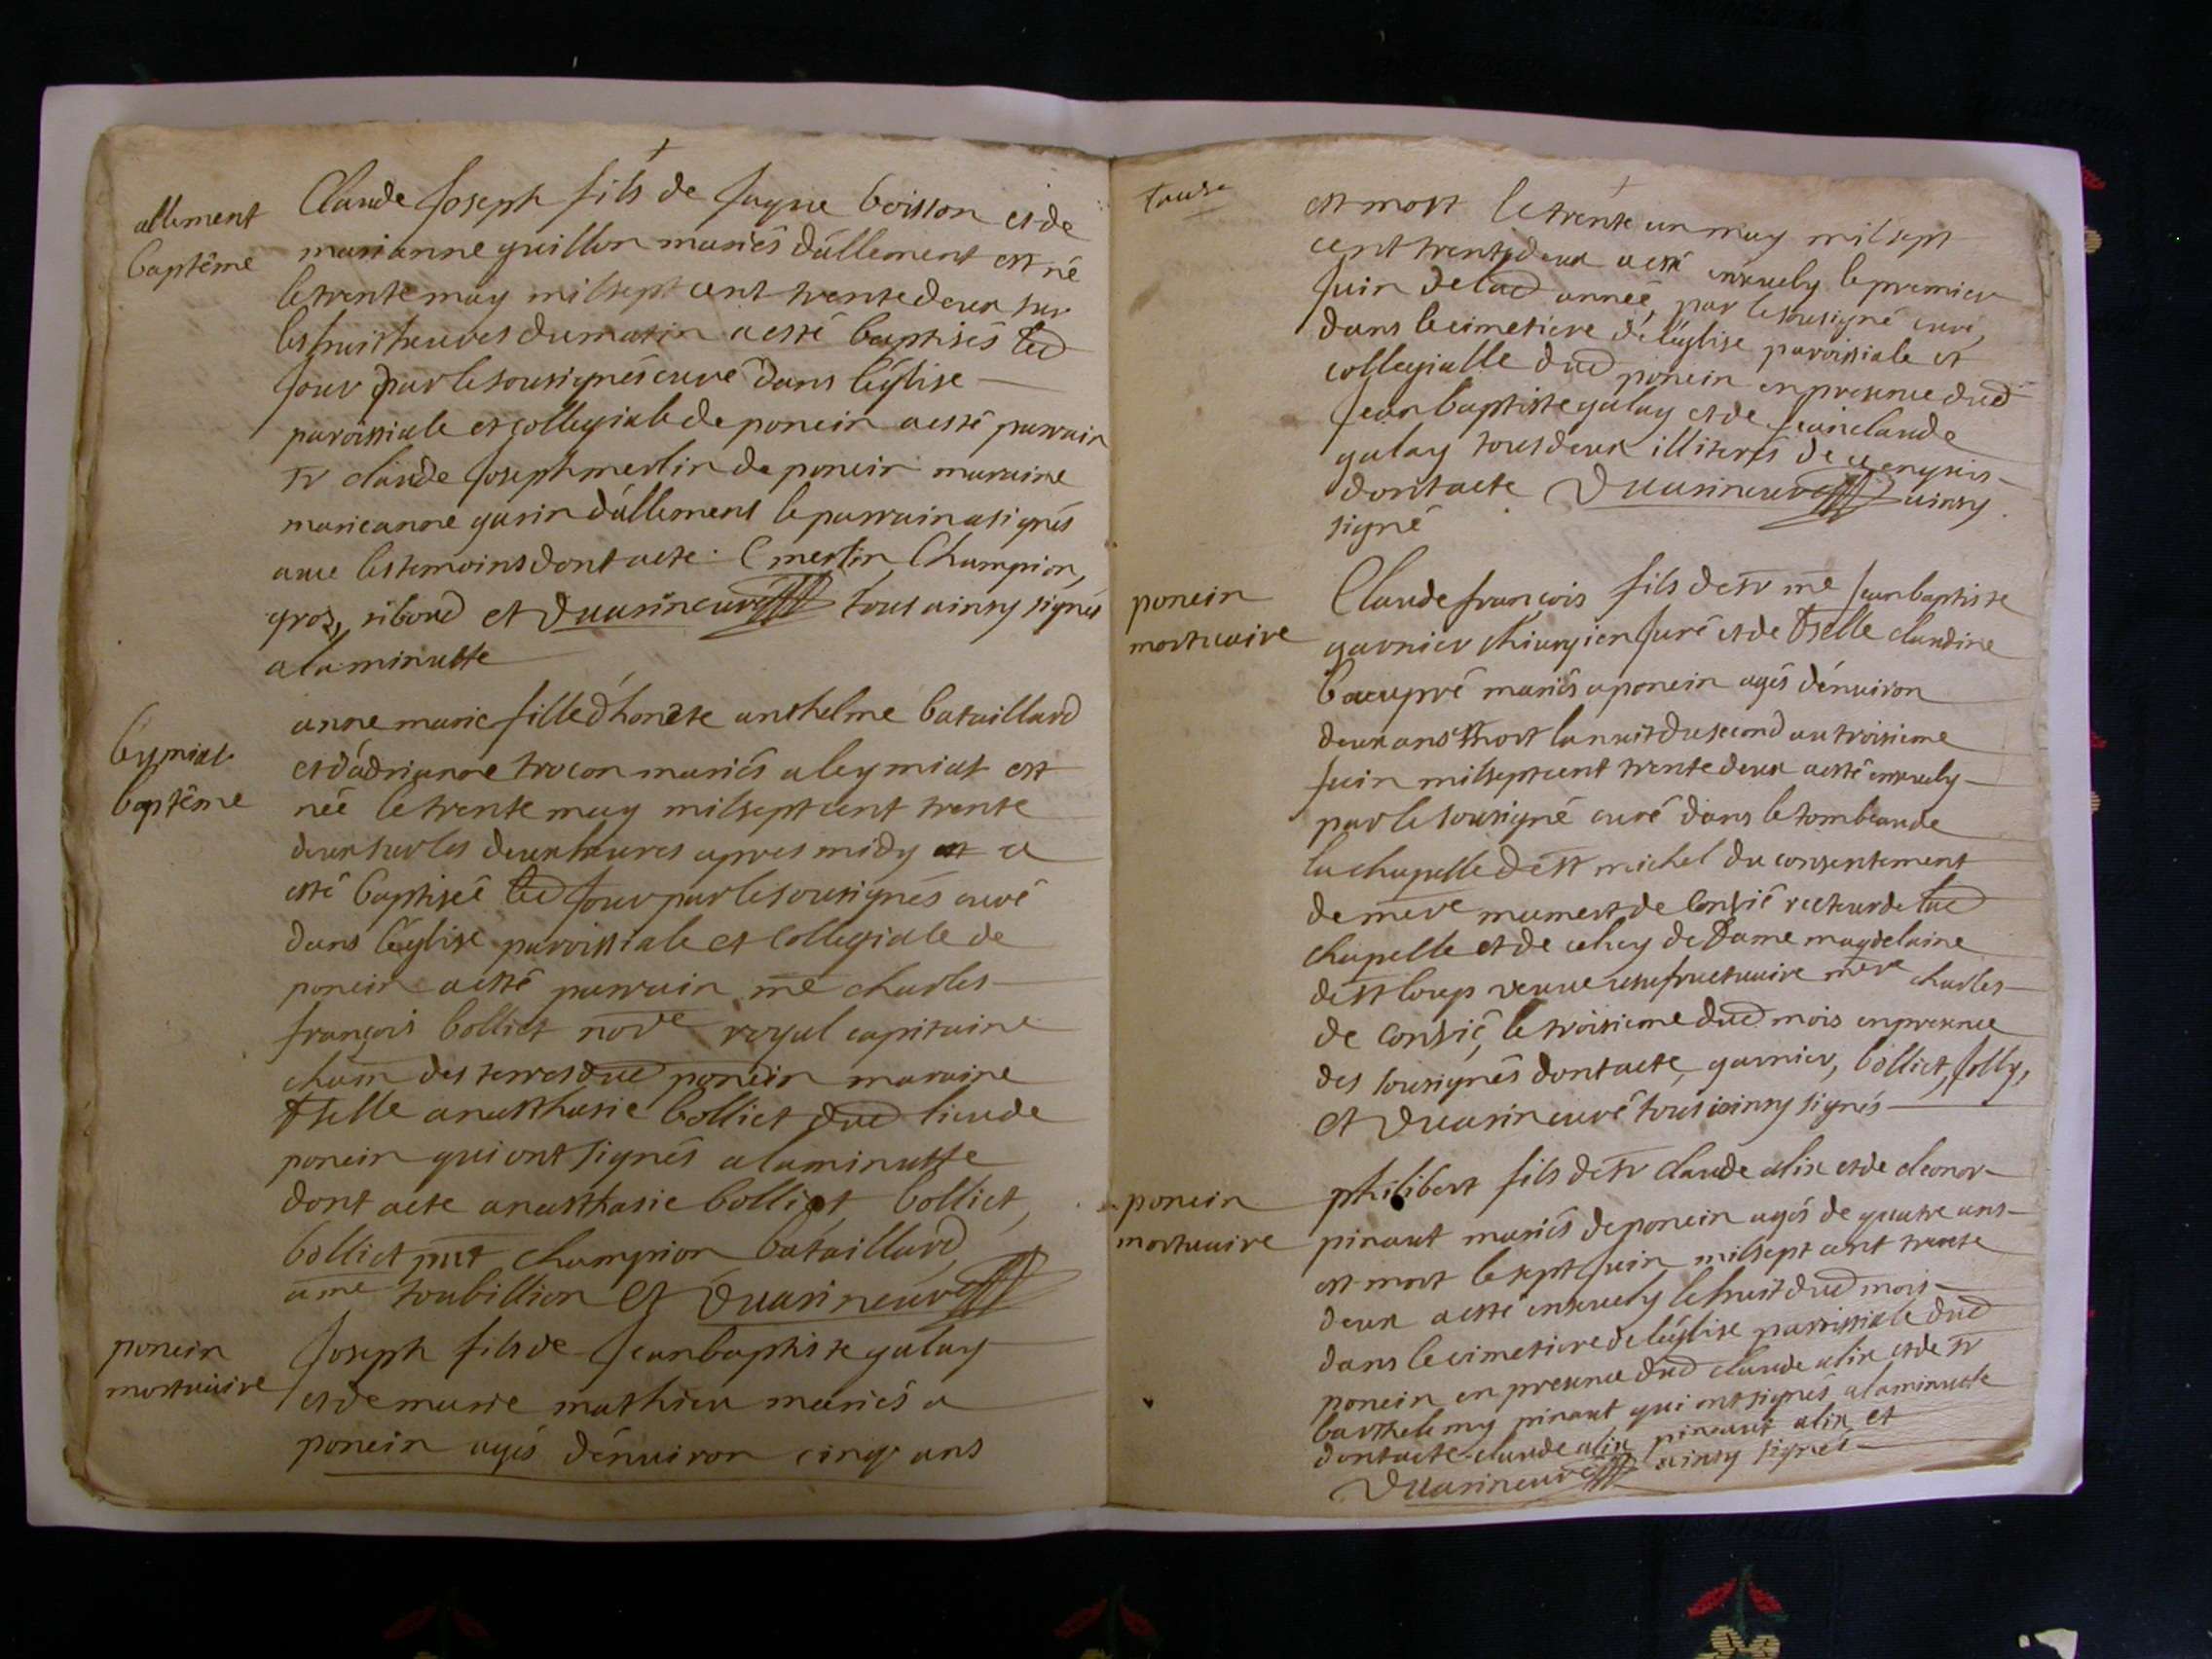 allement
baptême
Claude Joseph fils de Jaque boisson et de
marianne guillon mariés d'allement est né
le trente may mil sept cent trente deux sur
les huit heures du matin a esté baptisés led
jour par le sousignés curé dans l'églize
paroissiale et collegiale de poncin a esté parrain
sr claude Joseph merlin de poncin maraine
marieanne garin d'allement le parrain a signés
avec les temoins dont acte. C merlin, Champion,
gros, riboud et Duarin curé tous ainsy signés
a la minutte
leymiat
baptême
anne marie fille d'honête anthelme bataillard
et d'adrianne trocon mariés a leymiat est
née le trente may mil sept cent trente
deux sur les deux heures apres midy et a
esté baptiseé led jour par le sousignés curé
dans l'églize paroissiale et collegiale de
poncin a esté parrain me charles
françois bolliet nore royal capitaine
chain des terres dud poncin maraine
dselle anasthasie bolliet dud lieu de
poncin qui ont signés a la minutte
dont acte anasthasie bolliet, bolliet,
bolliet champion bataillard,
toubillion et Duarin curé
poncin
mortuaire
Joseph fils de Jean baptiste galay
et de marie mathieu mariés a
poncin agés d'enuiron cinq ans
est mort le trente un may mil sept
cent trente deux a esté enseuely le premier
Juin de lad anneé, par le sousigné curé,
dans le cimetiere de l'églize paroissiale et
collegialle dud poncin en presence dud
Jean baptiste galay et de Jean claude
galay tous deux illiterés de ce enquis
dont acte Duarin curé ainsy
signé
poncin
mortuaire
Claude françois fils de sr me Jean baptiste
garnier chiurgien Juré et de dselle claudine
mariés a poncin agés d'enuiron
deux ans mort la nuit du second au troisieme
Juin mil sept cent trente deux a esté enseuely
par le sousigné curé dans le tombeau de
la chapelle de st michel du consentement
de mere de Conzié recteur de lad
chapelle et de celuy de Dame magdelaine
de st loup veuue usufructuaire mere charles
de Conzié, le troisieme dud mois en presence
des sousignés dont acte, garnier, bolliet, Jolly,
et Duarin curé tous ainsy signés
poncin
mortuaire
philibert fils de sr claude alix et de eleonor
pinaut mariés de poncin agés de quatre ans
est mort le sept Juin mil sept cent trente
deux a esté enseuely le huit dud mois
dans le cimetiere de l'églize paroissiale dud
poncin en presence dud claude alix et de sr
barthelemy pinaut qui ont signés a la minutte
dont acte claude alix pinaut alix et
Duarin curé ainsy signés